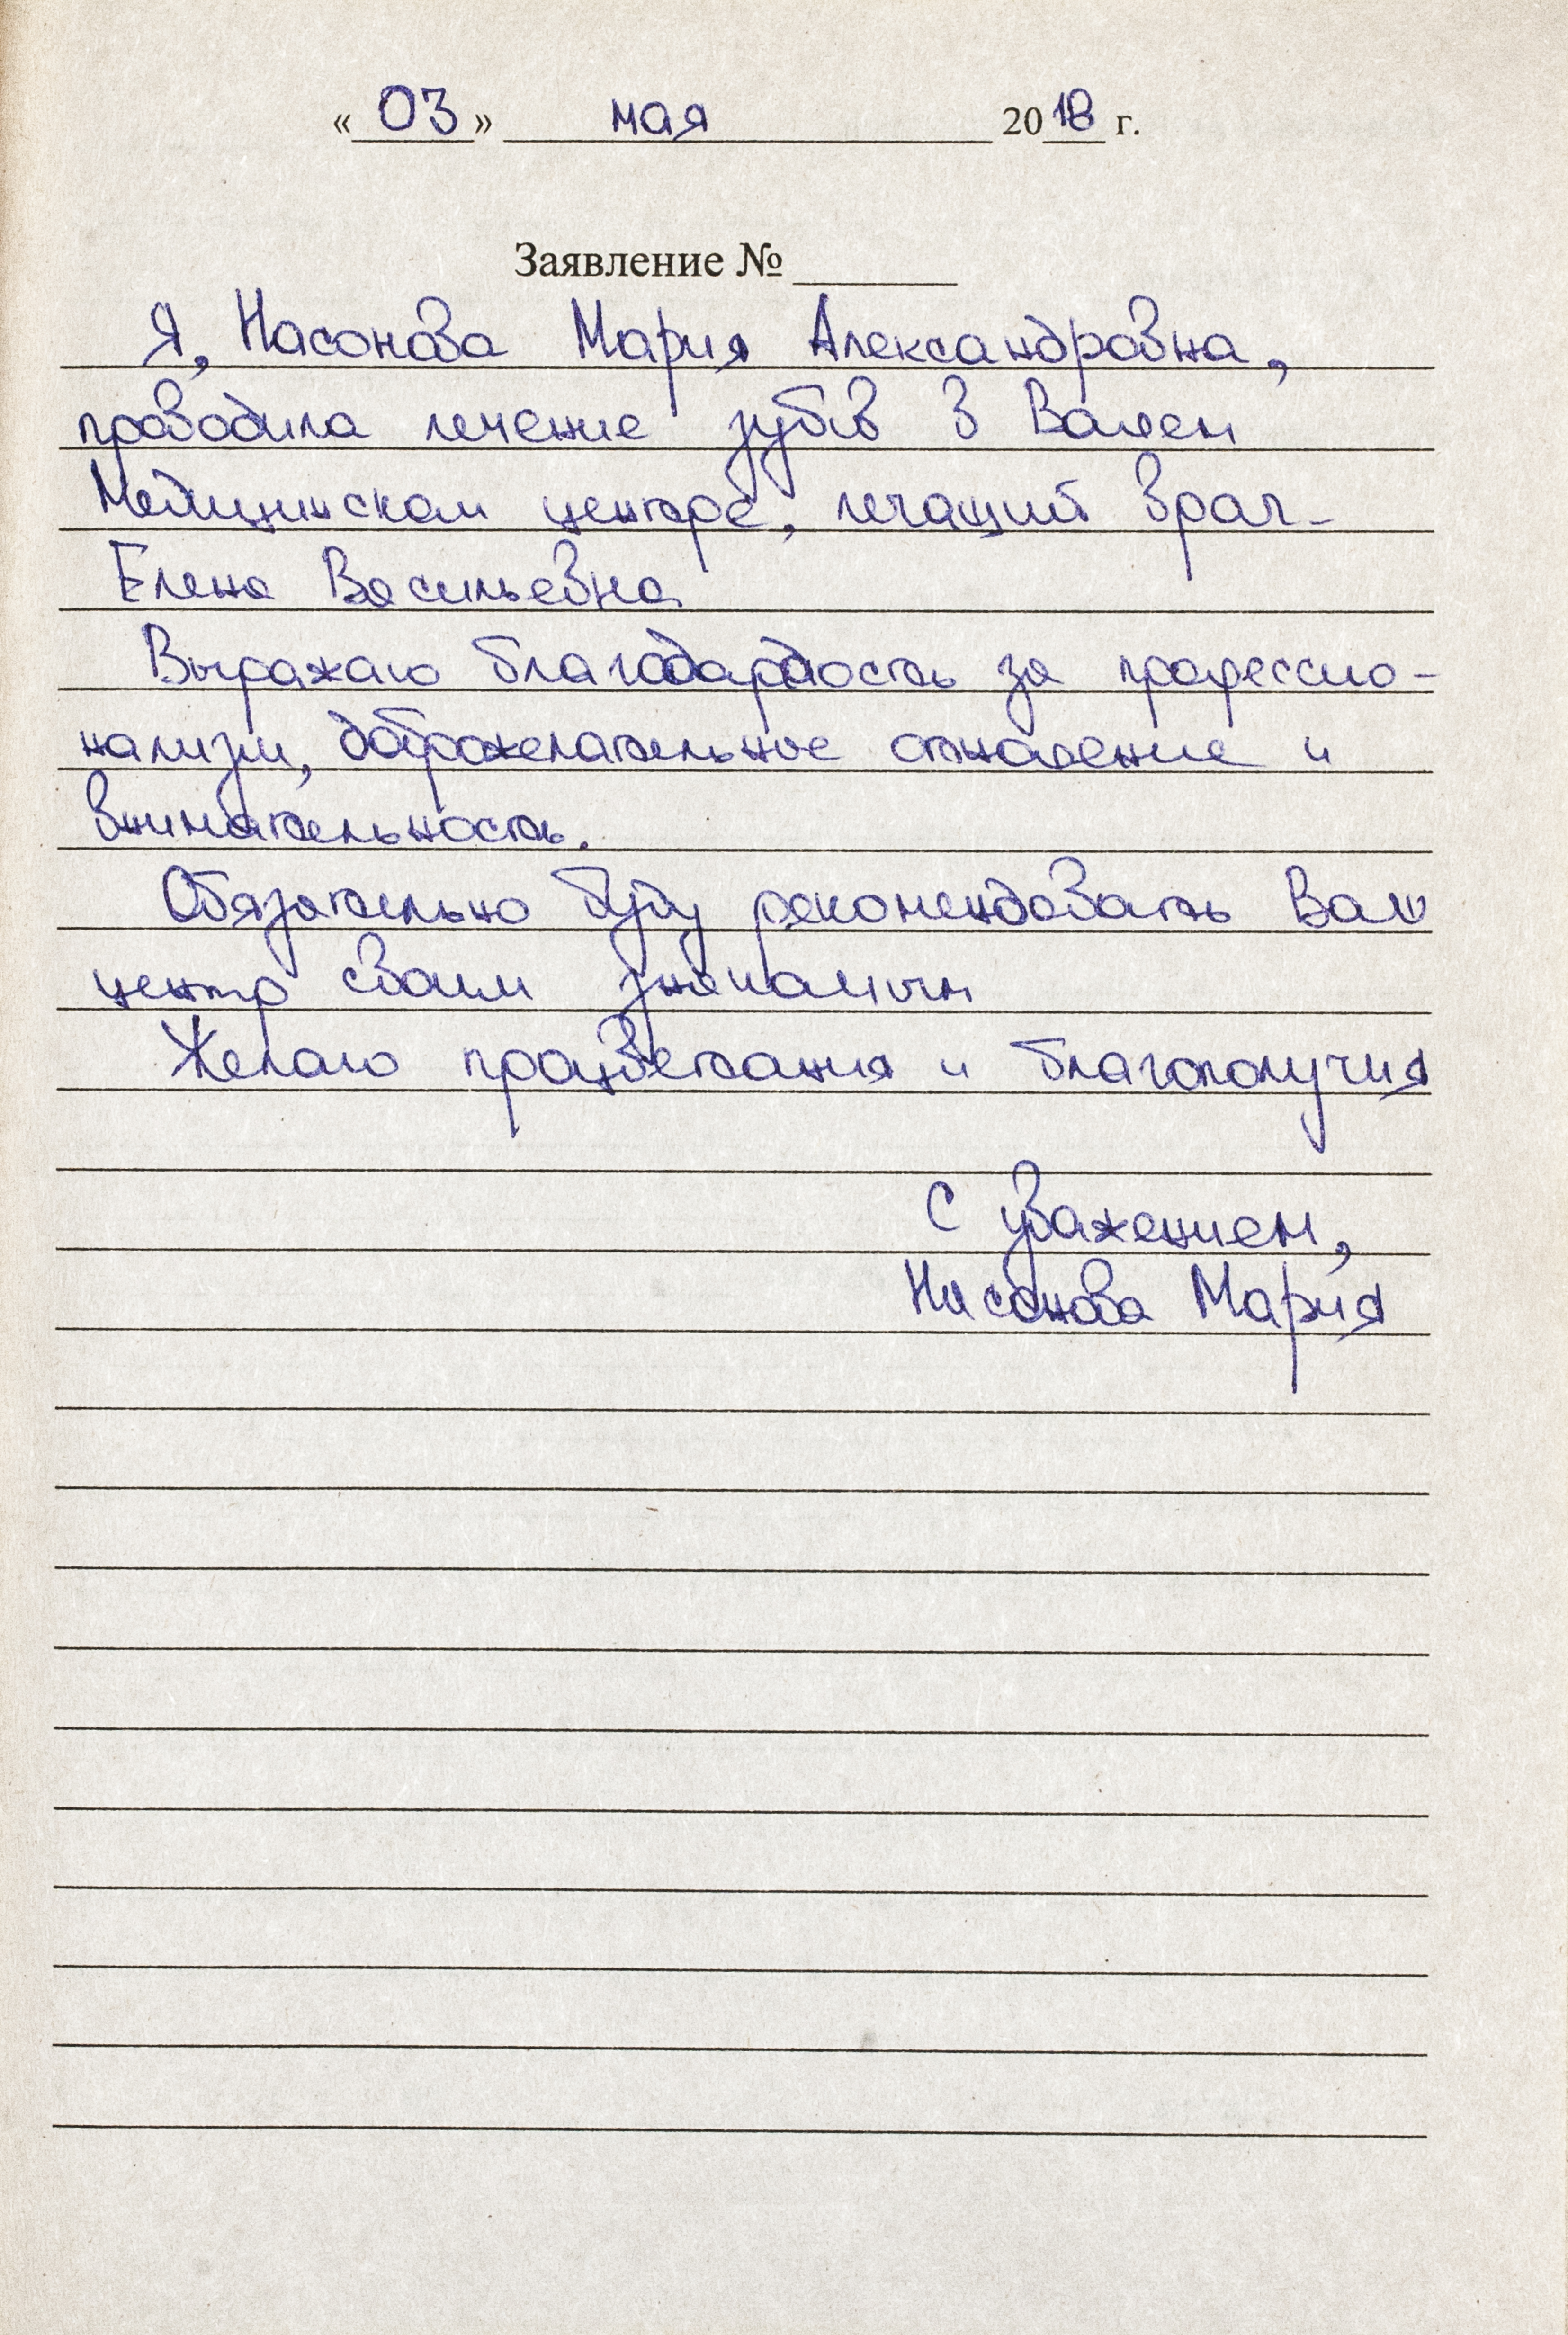 « 03 » мая 2018 г.
Заявление №
Я, Насонова Мария Александровна,
проводила лечение зубов в Вашем
Медицинском центре, лечащий врач -
Елена Васильевна
Выражаю благодардность за профессио-
нализм, доброжелательное отношение и
внимательность.
Обязательно буду рекомендовать Ваш
центр своим знакомым
Желаю процветания и благополучия
С уважением,
Насонова Мария